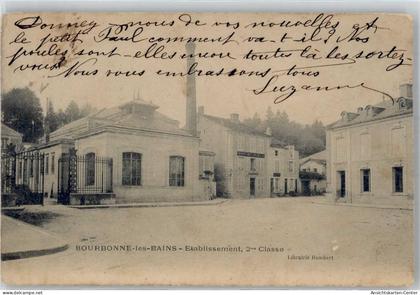 Donnez-nous de vos nouvelles et
le petit Paul comment va-t-il? Nos
poules sont-elles encore toutes là les sortez-
vous. Nous vous embrassons tous
Suzanne
BOURBONNE-les-BAINS - Etablissement, 2me Classe
Librairie Humbert
www.ansichtskarten-center.de